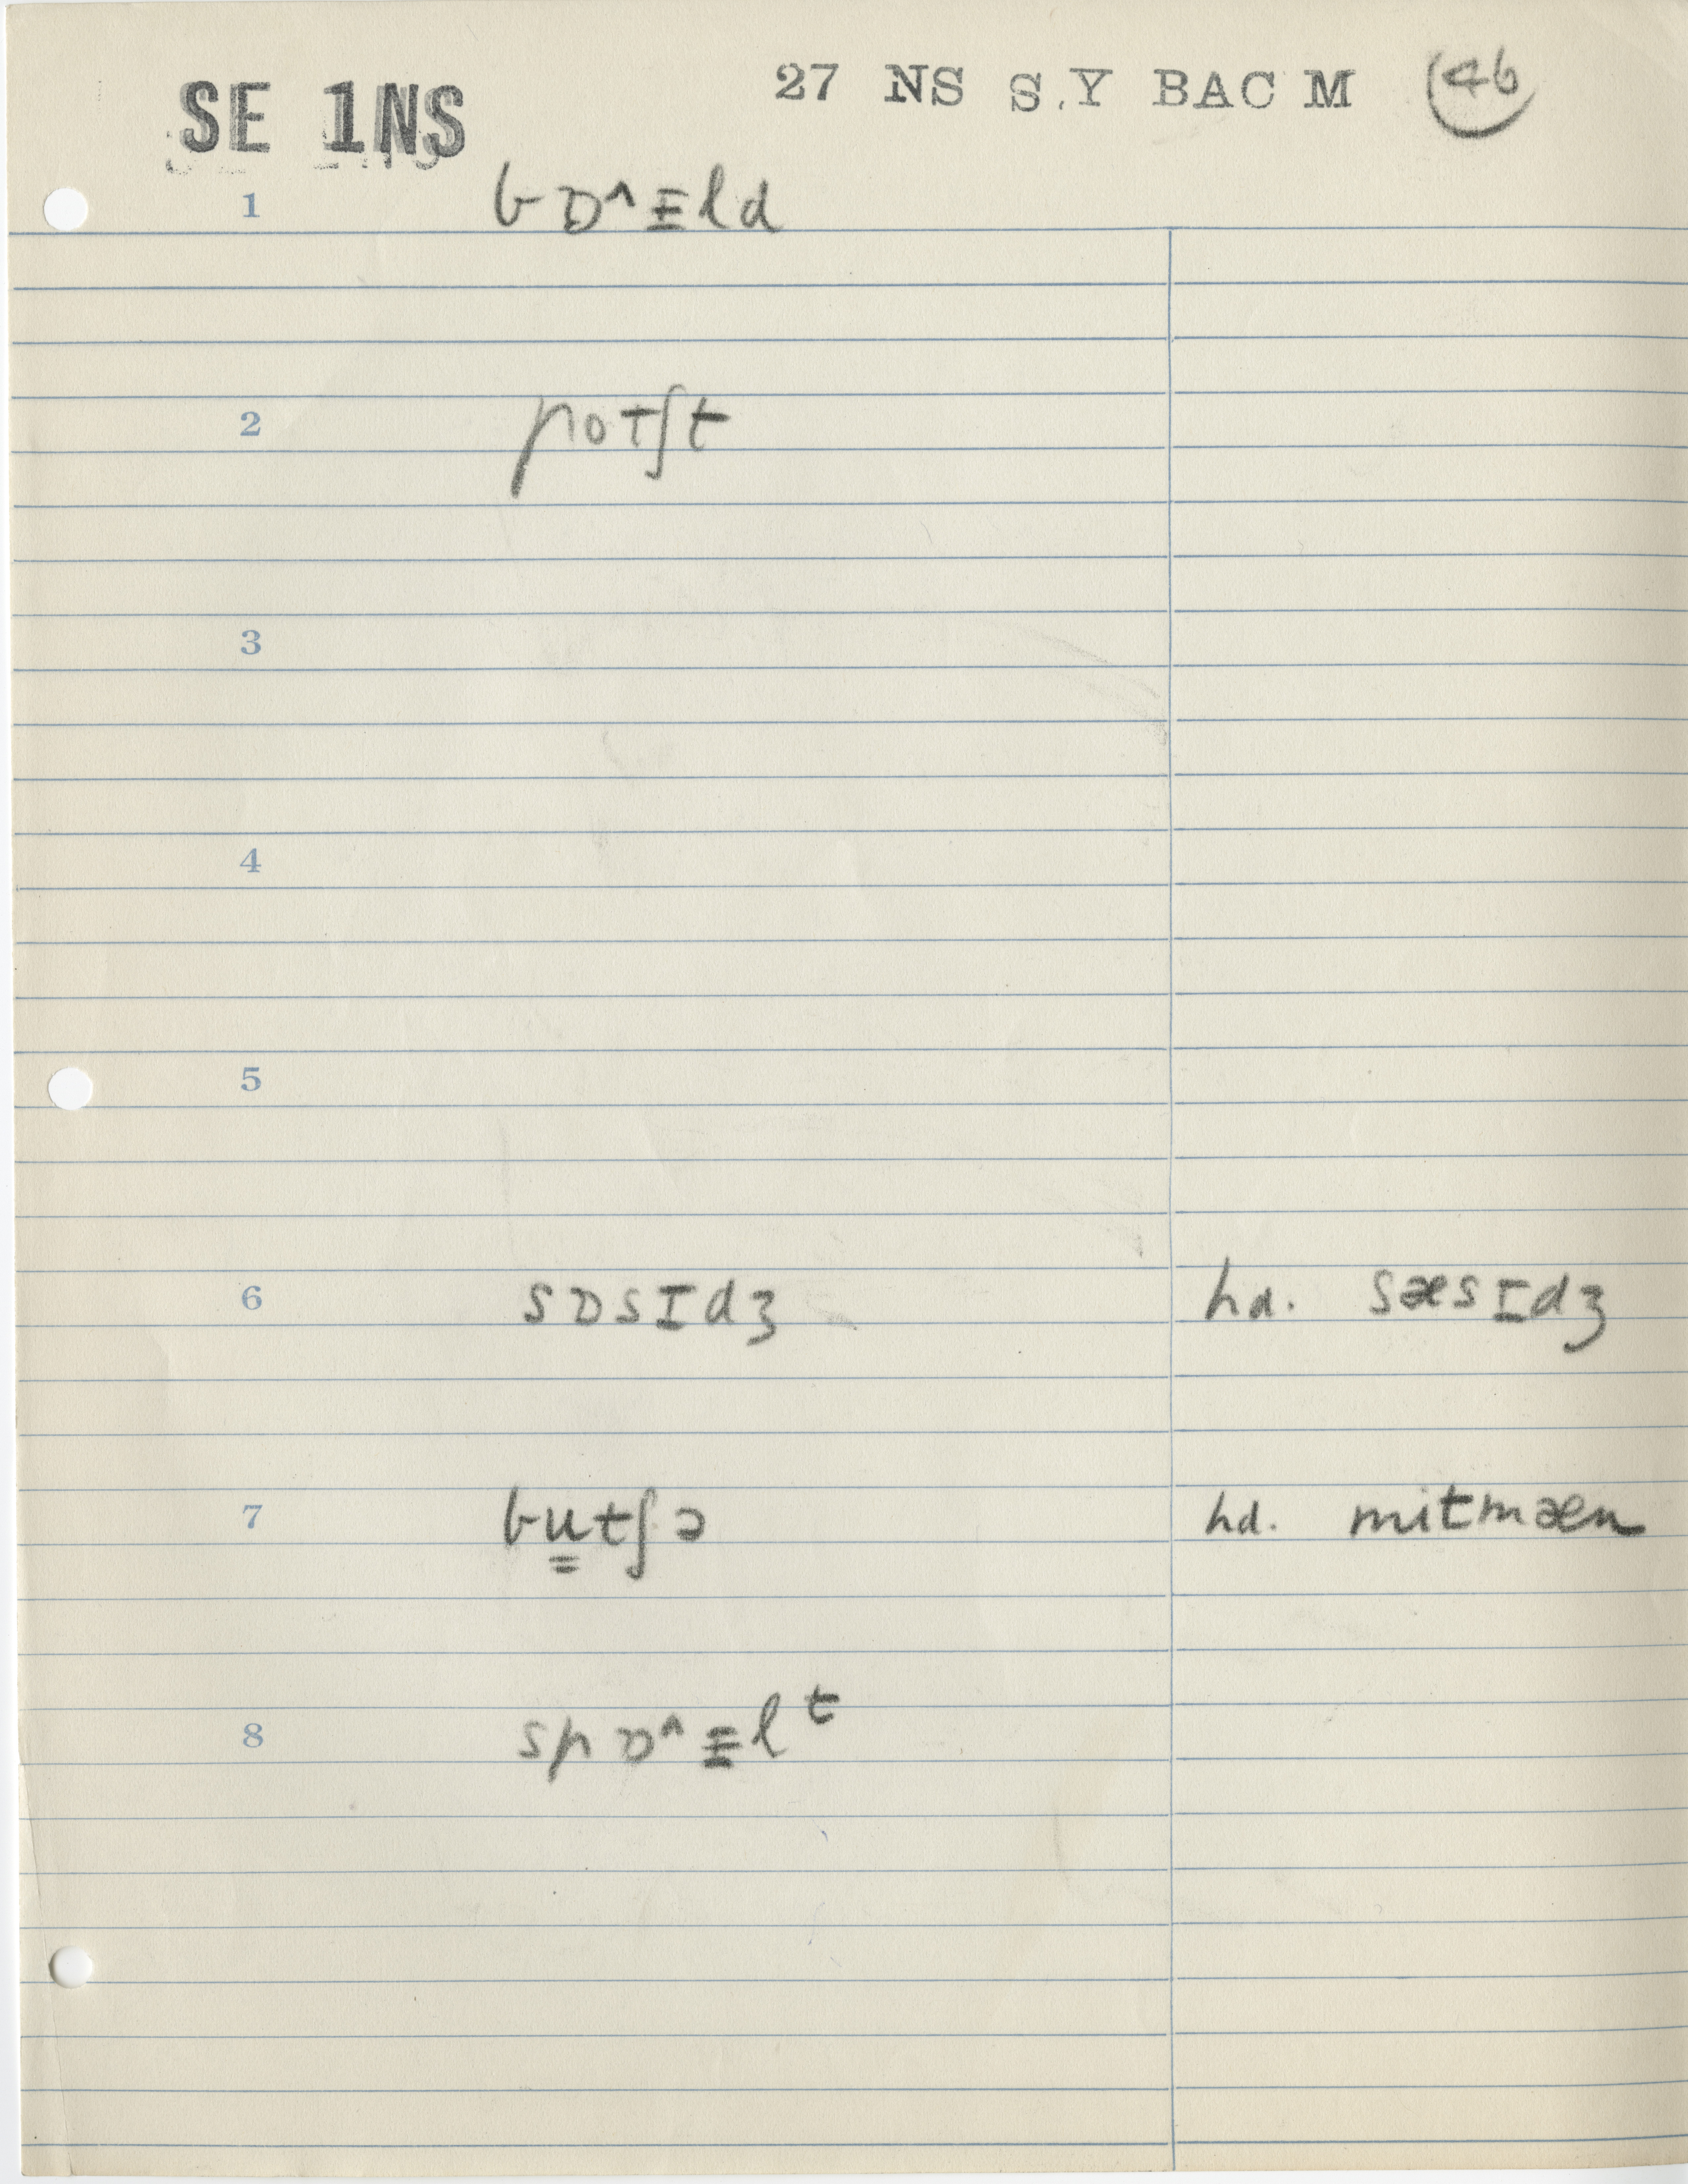 SE 1NS
27 NS S.Y BAC M 46
1 bɒ^ɪld
2 potʃt
3
4
5
6 sɒsɪdʒ hd. sæsɪdʒ
7 bu̳tʃə hd. mitmæn
8 spɒ^ɪlᵗ